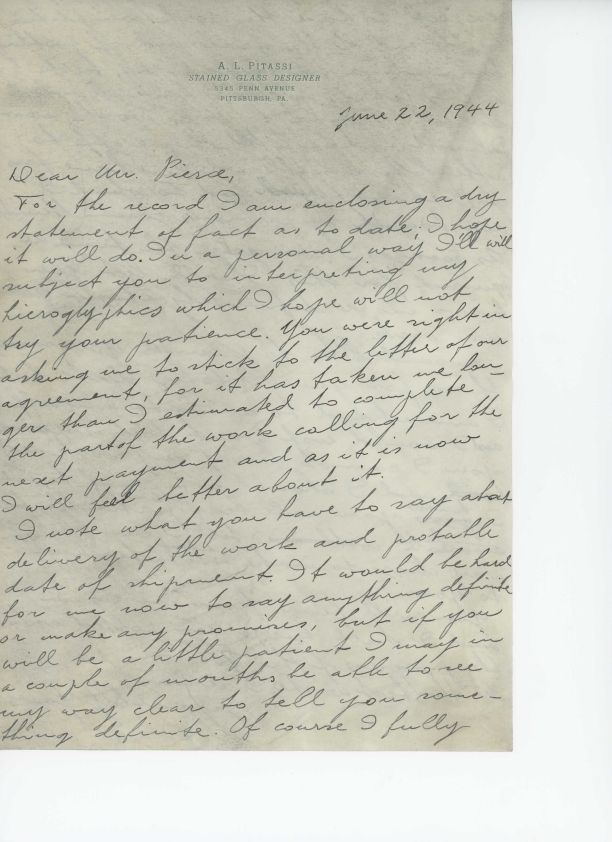 A. L. PITASSI
STAINED GLASS DESIGNER
5345 PENN AVENUE
PITTSBURGH, PA.
June 22, 1944
Dear Mr. Pierce,
For the record I am enclosing a dry
statement of fact as to date; I hope
it will do. In a personal way I'll will
subject you to interpreting my
hieroglyphics which I hope will not
try your patience. You were right in
asking me to stick to the letter of our
agreement, for it has taken me lon-
ger than I estimated to complete
the part of the work calling for the
next payment and as it is now
I will feel better about it.
I note what you have to say about
delivery of the work and probable
date of shipment. It would be hard
for me now to say anything definite
or make any promises, but if you
will be a little patient I may in
a couple of months be able to see
my way clear to tell you some-
thing definite. Of course I fully